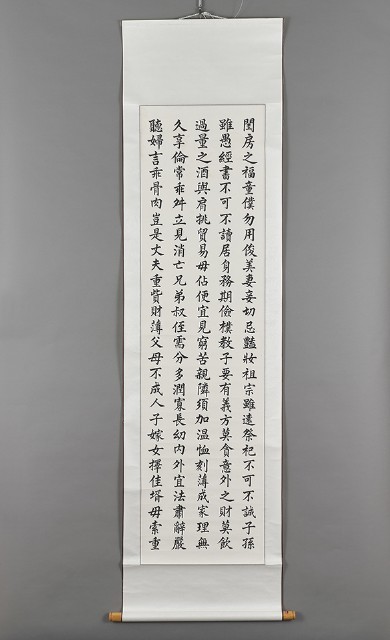 閨房之福童僕勿用俊美妻妾切忌豔妝祖宗雖遠祭祀不可不誠子孫
雖愚經書不可不讀居身務期儉樸教子要有義方莫貪意外之財莫飲
過量之酒與肩挑貿易毋佔便宜見窮苦親隣須加温恤刻薄成家理無
久享倫常乖舛立見消亡兄弟叔侄需分多潤寡長幼內外宜法肅辭嚴
聽婦言乖骨肉豈是丈夫重貲財薄父母不成人子嫁女擇佳壻毋索重